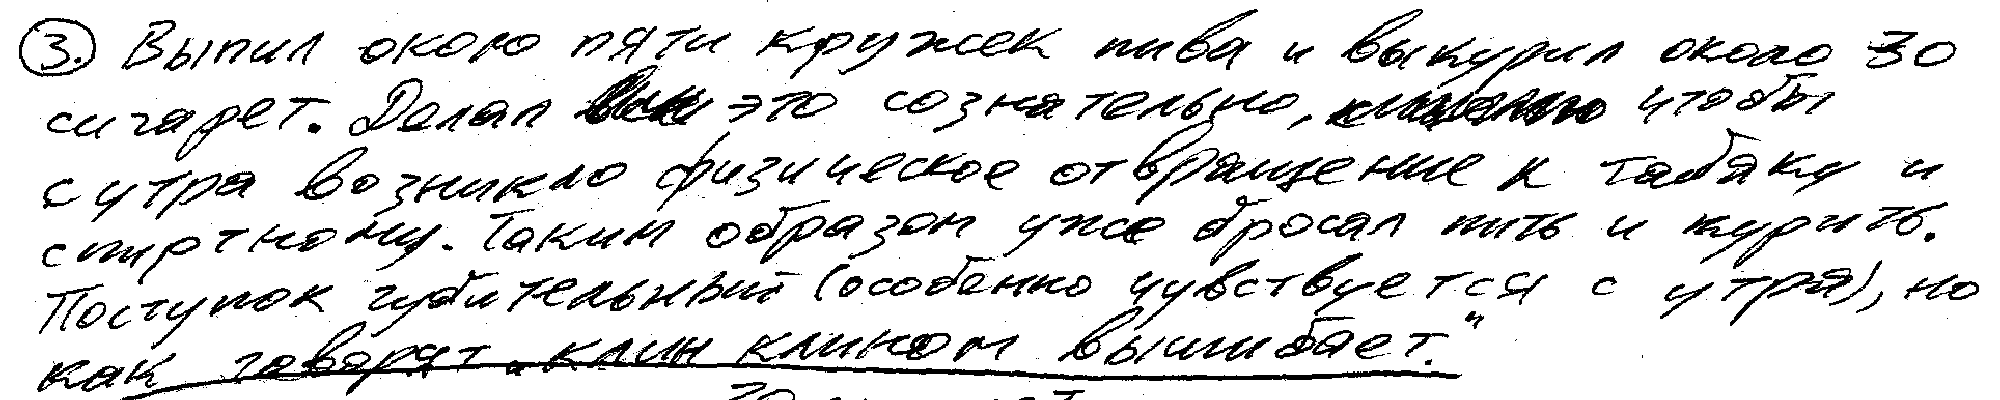 3. Выпил около пяти кружек пива и выкурил около 30
сигарет. Делал это сознательно, чтобы
с утра возникло физическое отвращение к табаку и
спиртному. Таким образом уже бросал пить и курить.
Поступок губительный (особенно чувствуется с утра), но
как говорят „клин клином вышибает."